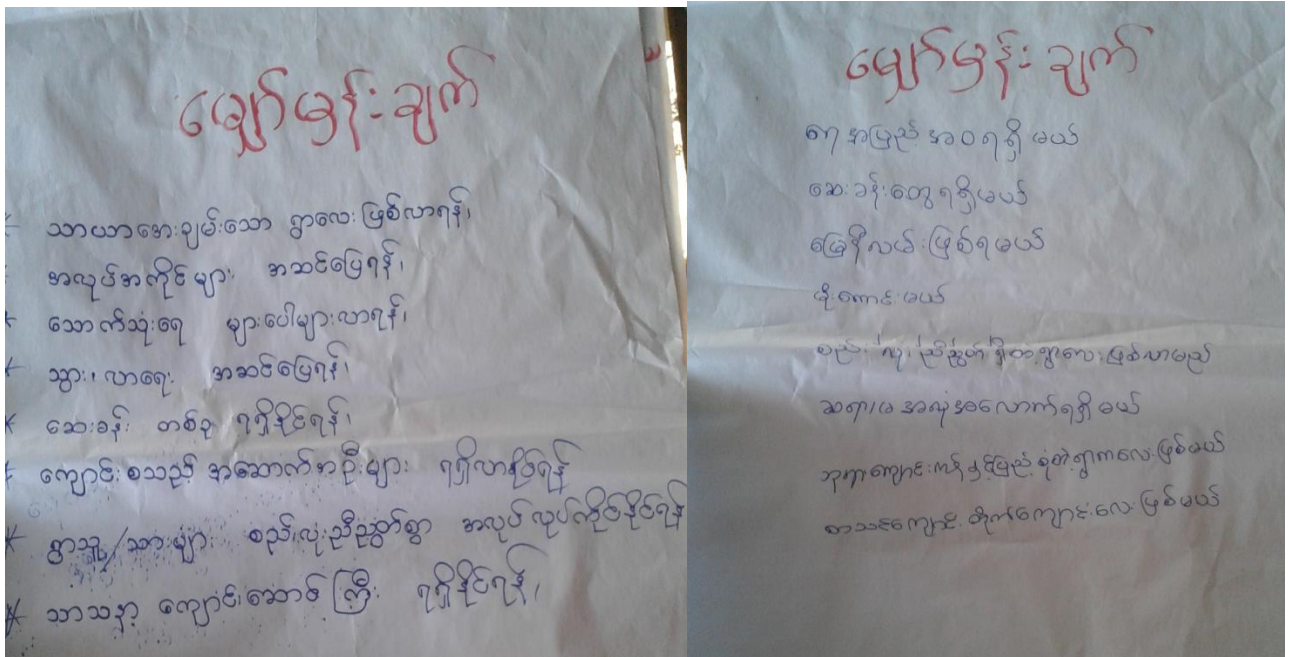 မျှော်မှန်းချက်
* သာယာအေးချမ်းသော ရွာလေး ဖြစ်လာရန်၊
* အလုပ်အကိုင်များ အဆင်ပြေရန်၊
* သောက်သုံးရေ များပေါများလာရန်၊
* သွား၊လာရေး အဆင်ပြေရန်၊
* ဆေးခန်း တစ်ခု ရရှိနိုင်ရန်၊
* ကျောင်းစသည့် အဆောက်အဦးများ ရရှိလာနိုင်ရန်
* ရွာသူ/သားများ စည်းလုံးညီညွတ်စွာ အလုပ်လုပ်ကိုင်နိုင်ရန်
* သာသနာ့ ကျောင်းဆောင်ကြီး ရရှိနိုင်ရန်၊
မျှော်မှန်းချက်
ရေအပြည့်အဝရရှိမယ်
ဆေးခန်းတွေရရှိမယ်
မြေနီလမ်းဖြစ်ရမယ်
မိုးကောင်းမယ်
စည်းလုံးညီညွတ်ရွာလေးဖြစ်လာမည်
ဆရာ/မ အလုံအလောက်ရရှိမယ်
ဘုရားကျောင်းကန်နှင့်ပြည့်စုံတဲ့ရွာကလေးဖြစ်မယ်
စာသင်ကျောင်း တိုက်ကျောင်းလေးဖြစ်မယ်